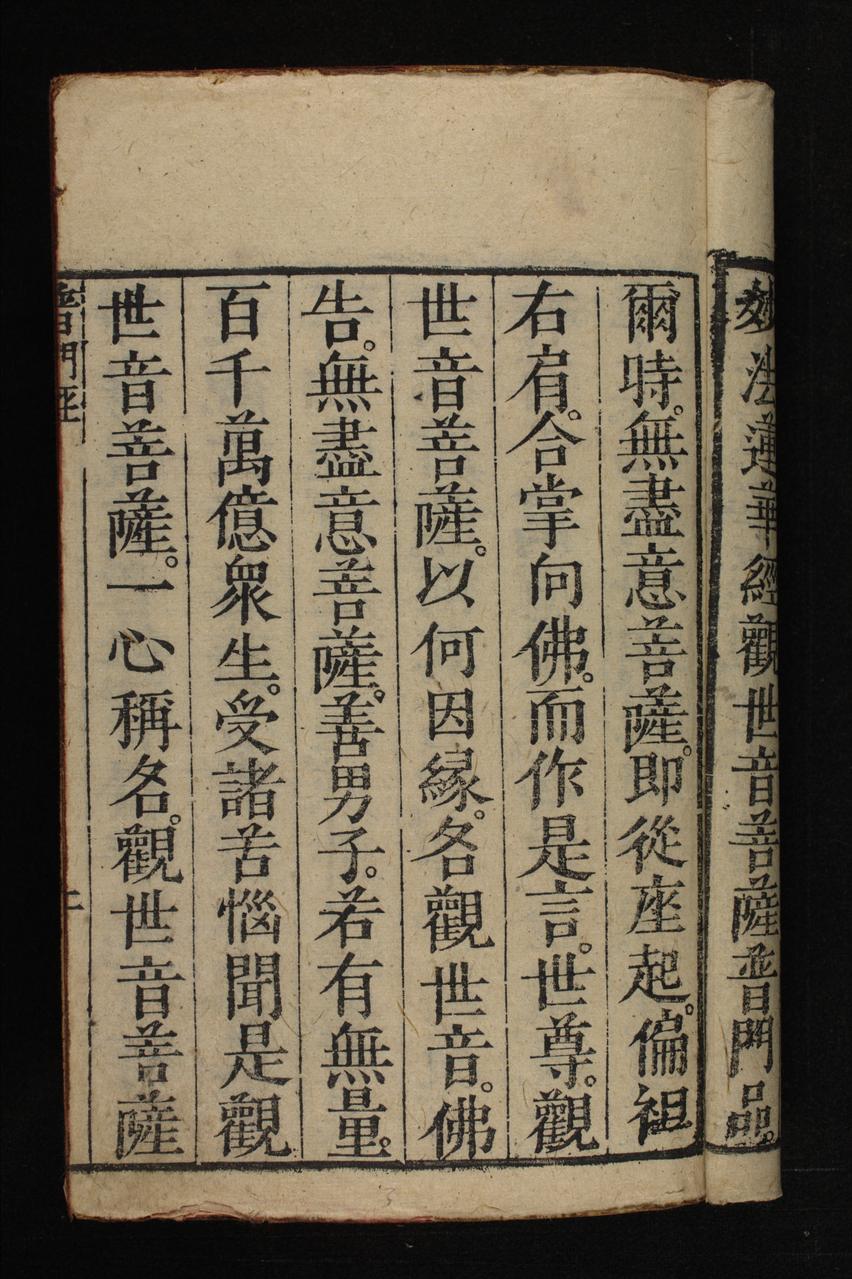 妙法蓮華經觀世音菩薩普門品。
爾時。無盡意菩薩。即從座起。偏袒
右肩。合掌向佛。而作是言。世尊。觀
世音菩薩。以何因緣。名觀世音。佛
告。無盡意菩薩。善男子。若有無量。
百千萬億衆生。受諸苦惱聞是觀
世音菩薩。一心稱名。觀世音菩薩
普門經